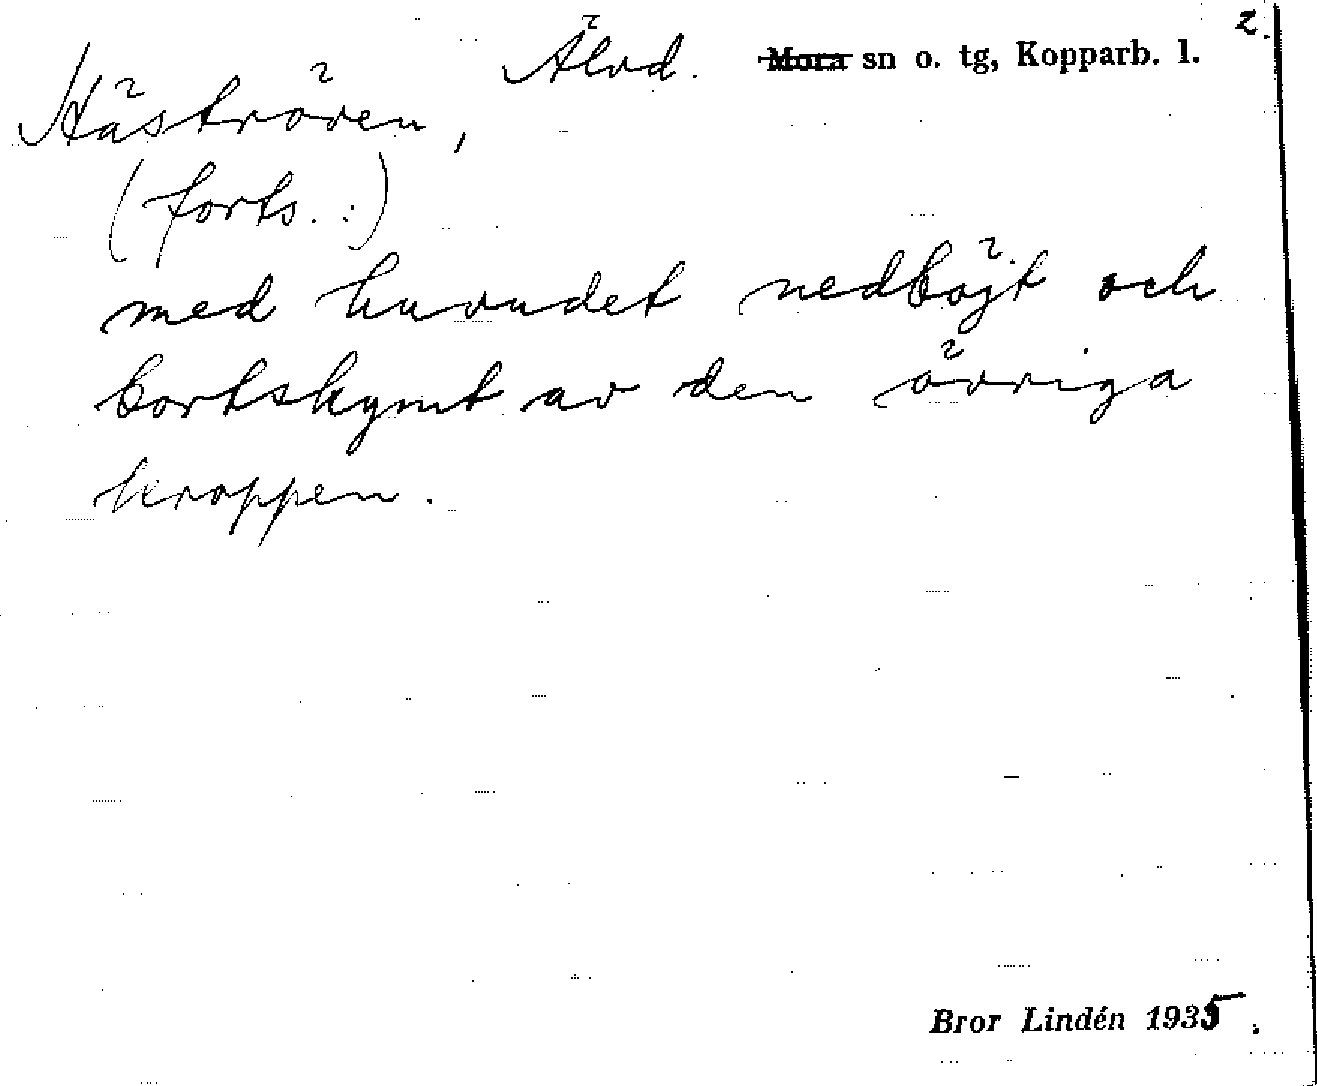 2.
Älvd. ~~Mora~~ sn o. tg, Kopparb. l.
Häströven,
(forts. :)
med huvudet nedböjt och
bortskymt av den övriga
kroppen.
Bror Lindén 1935.